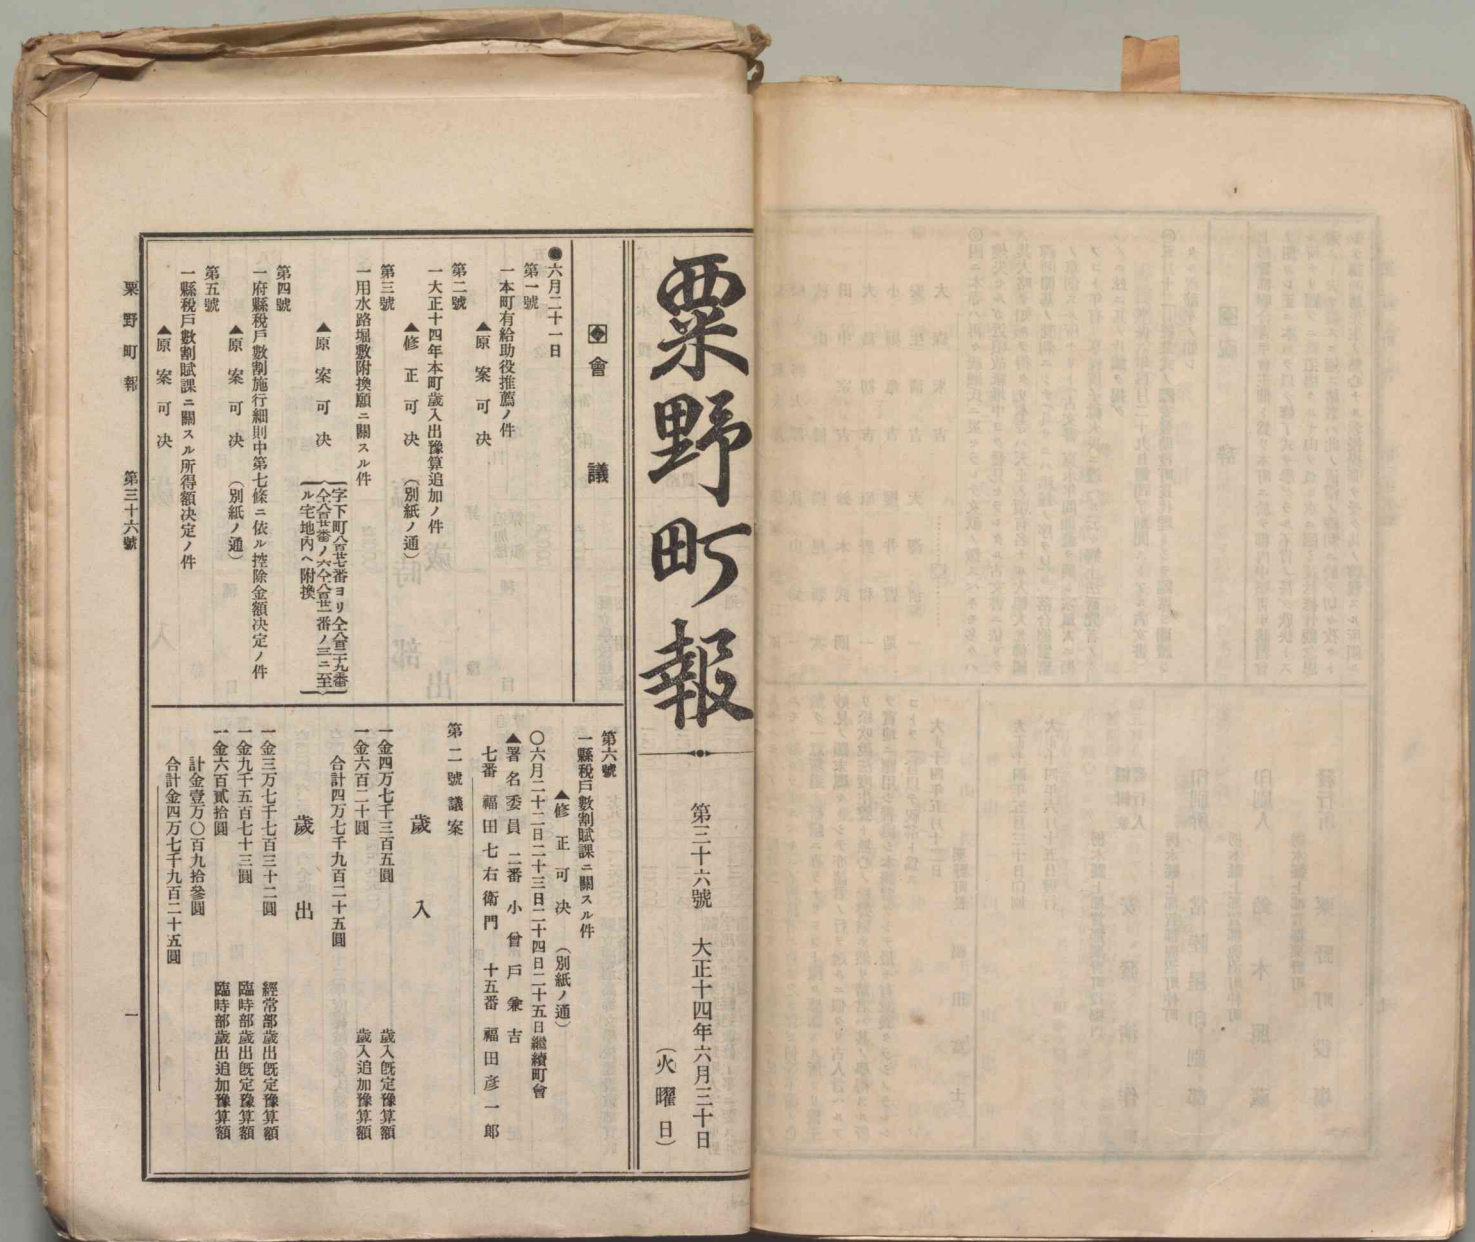 粟野町報
第三十六號　大正十四年六月三十日
（火曜日）
會議
六月二十一日
第一號
一本町有給助役推薦ノ件
▲原案可决
第二號
一大正十四年本町歲入出豫算追加ノ件
▲修正可决　（別紙ノ通）
第三號
一用水路堀敷附換願ニ關スル件
▲原案可决
ル宅地內ヘ附換
第四號
一府縣稅戶數割施行細則中第七條ニ依ル控除金額决定ノ件
▲原案可决　（別紙ノ通）
第五號
一縣稅戶數割賦課ニ關スル所得額决定ノ件
▲原案可决
第六號
一縣稅戶數割賦課ニ關スル件
▲修正可决　（別紙ノ通）
〇六月二十二日二十三日二十四日二十五日繼續町會
▲署名委員　二番　小曾戶兼吉
七番　福田七右衛門　十五番　福田彦一郎
第二號議案
歲入
一金四万七千三百五圓　歲入旣定豫算額
一金六百二十圓　歲入追加豫算額
合計四万七千九百二十五圓
歲出
一金三万七千七百三十二圓　經常部歲出旣定豫算額
一金九千五百七十三圓　臨時部歲出旣定豫算額
一金六百貳拾圓　臨時部歲出追加豫算額
計金壹万〇百九拾參圓
合計金四万七千九百二十五圓
粟野町報　第三十六號　一